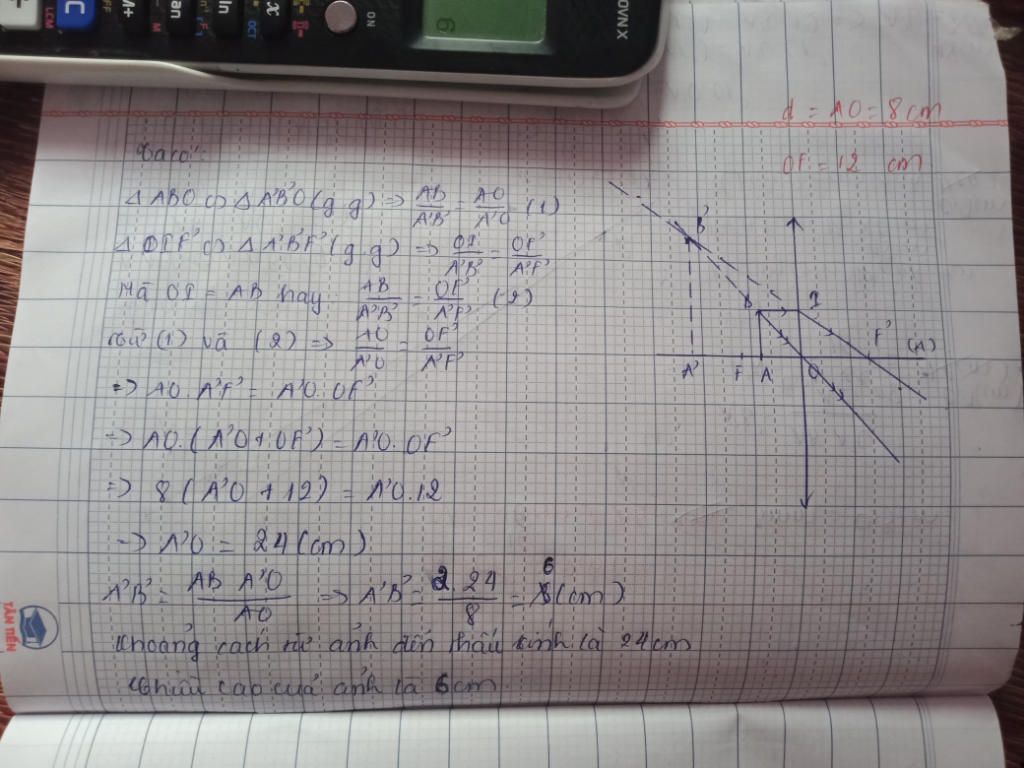 d = AO = 8cm
OF = 12 cm
Ta có:
Δ ABO ∽ Δ A'B'O (g.g) => AB/A'B' = AO/A'O (1)
Δ OIF' ∽ Δ A'B'F' (g.g) => OI/A'B' = OF'/A'F'
Mà OI = AB hay AB/A'B' = OF'/A'F' (2)
Từ (1) và (2) => AO/A'O = OF'/A'F'
=> AO.A'F' = A'O.OF'
=> AO.(A'O + OF') = A'O.OF'
=> 8(A'O + 12) = A'O.12
=> A'O = 24(cm)
A'B' = AB A'O/AO => A'B' = 2.24/8 = 6(cm)
Khoảng cách từ ảnh đến thấu kính là 24cm
Chiều cao của ảnh là 6cm.
B'
B I
A' F A O F' (Δ)
TÂN TIẾN
ON